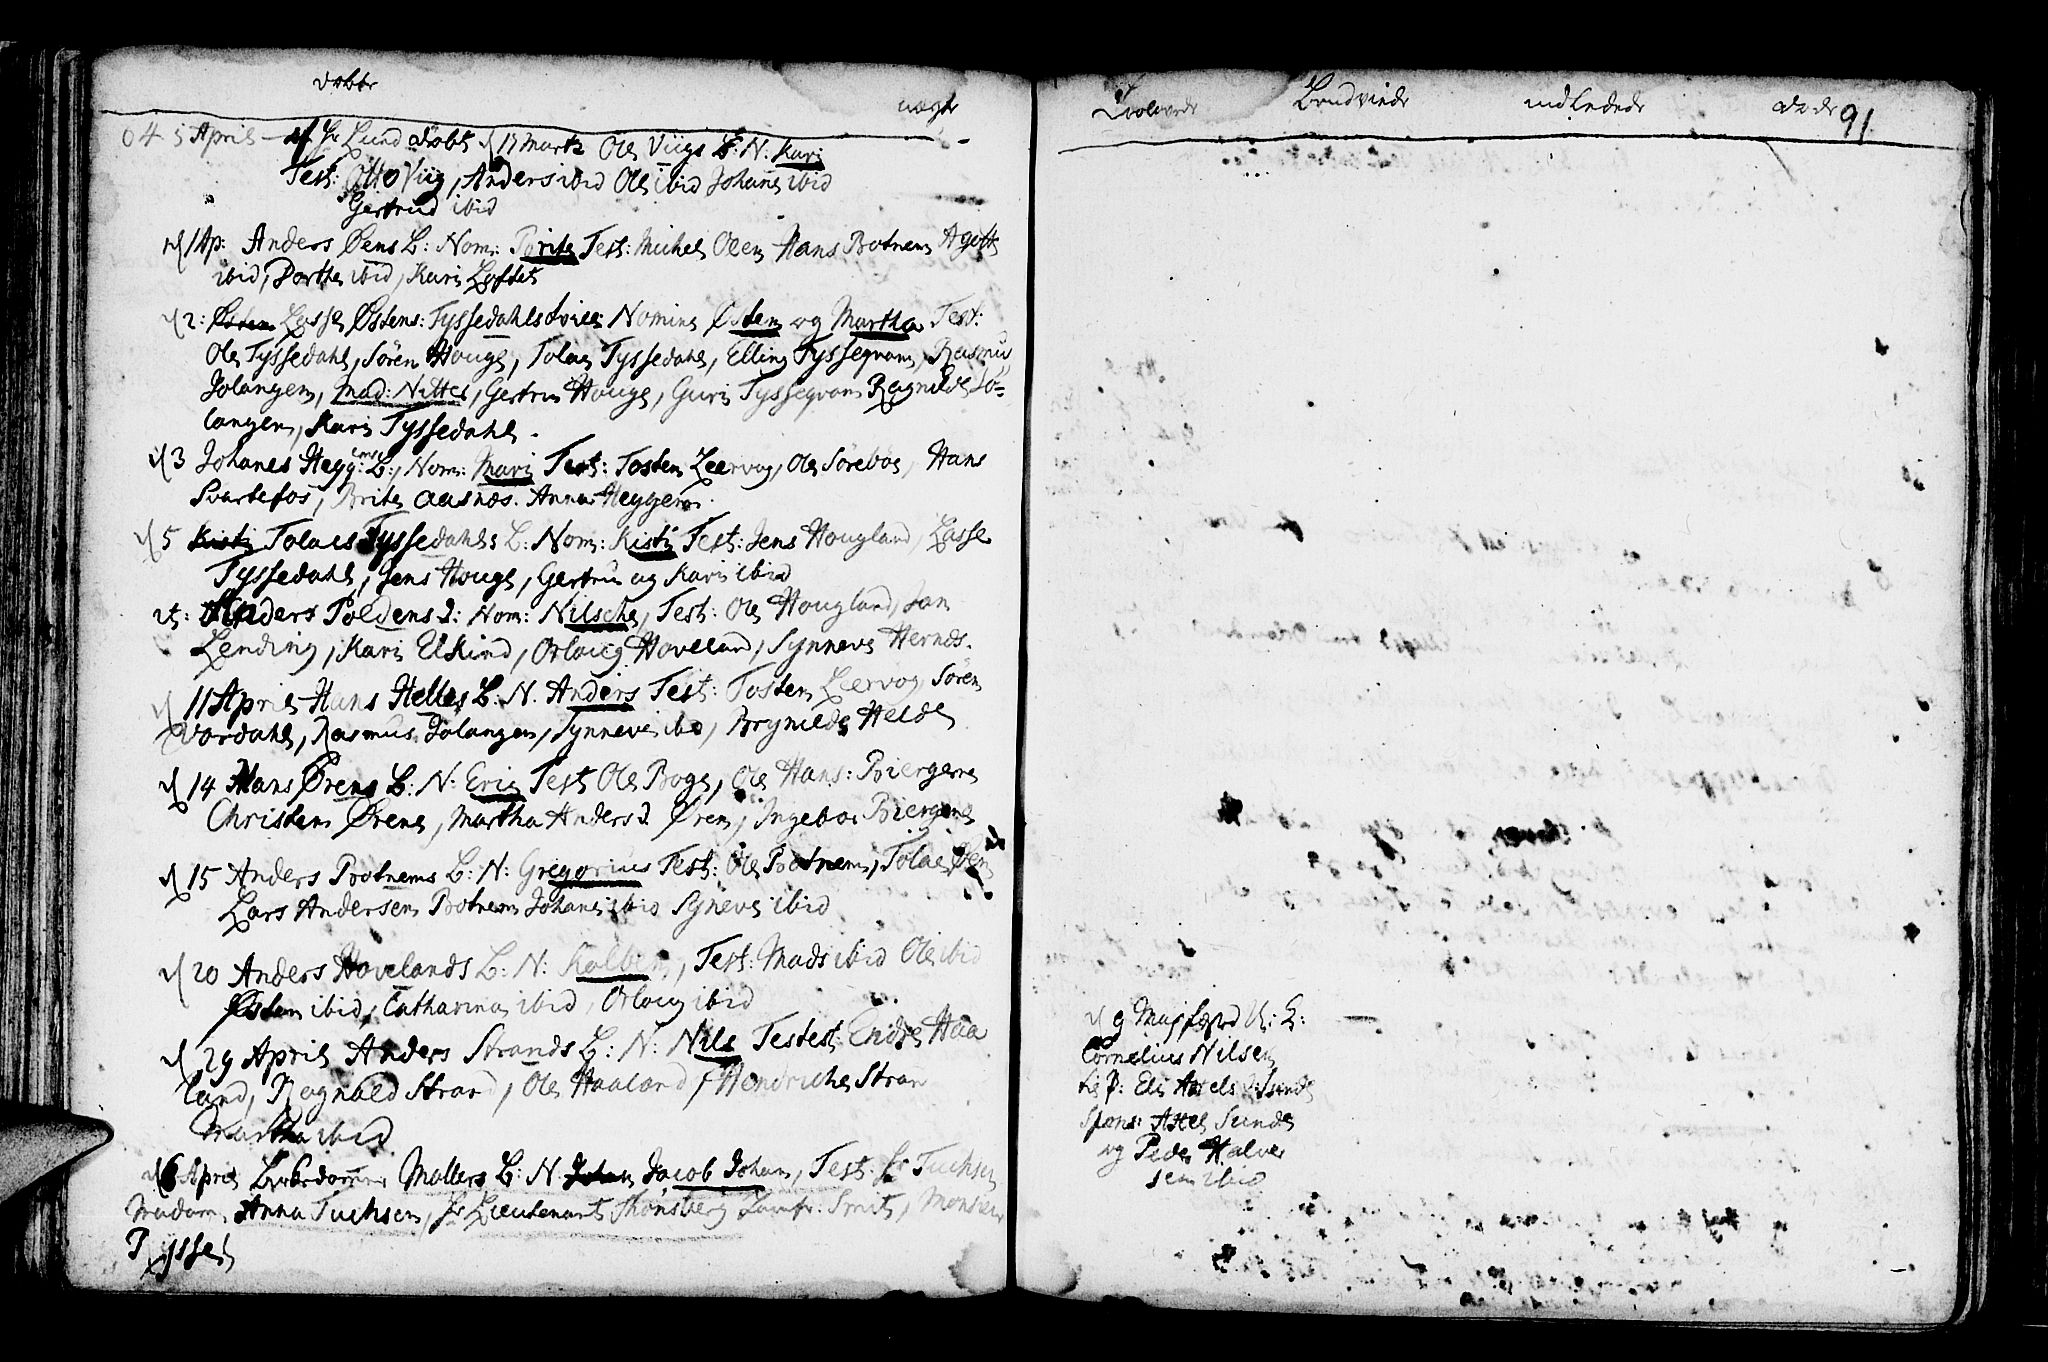 døbte
uægte
5 April Hr Lund døbt d 17 Marts Ole Viigs B: N: Kari
Test: Otto Viig, Anders ibid Ole ibid Johans ibid
Gertrud ibid
d 1 Ap: Anders Øens B: Nom: Brite Test: Michel Oen Hans Botnen Agath
ibid, Borthe ibid, Kari Loftet
d 2: Lasse Østens: Tyssedahls Nomine Østen og Martha Test:
Ole Tyssedahl, Sören Houge, Tolau Tyssedahl, Elling Tysseqvam, Rasmus
Jolangen, Mad: Nitter, Gertru Houge, Guri Tysseqvam Ragnilde Jo=
langen, Kari Tyssedahl.
d 3 Johanes Hegg: B:, Nom: Mari Test: Tosten Leervog, Ole Sörebøe, Hans
Svartefos, Brite Aasnæs. Anna Heggem
d 5 Tolaes Tyssedahls B: Nom: Kisti Test: Jens Hougland, Lasse
Tyssedahl, Jens Houge, Gertru og Kari ibid
dt: Anders Poldens D: Nom: Nilsche, Test: Ole Hougland, Jan
Lending, Kari Elkind, Orloug Hoveland, Synneve Hernæs.
d 11 April Hans Helles B: N. Anders Test: Tosten Leervog Sören
Vordahl, Rasmus Jolangen, Synneve ibid, Brynilde Helde
d 14 Hans Ørens B: N: Eric Test Ole Boge, Ole Hans: Biergene
Christen Ørene, Martha Anders D Øren, Ingebor Biergene
d 15 Anders Botnems B: N: Gregorius Test: Ole Botnem, Tolae Øen
Lars Andersen Botnem Johans ibid Syneve ibid
d 20 Anders Hovelands B: N: Kolben, Test: Mads ibid Ole ibid
Østen ibid, Catharina ibid, Orloug ibid
d 29 April Anders Strands B: N: Nils Testes: Endre Haa
land, Ragnald Strand, Ole Haaland, Hendriche Stran
Martha ibid
d 6 April Mollers B: N Jacob Johan, Test: Hr Tuchsen
Madam Anna Tuchsen, Hr Lieutenant Thonsberg Jomfr: Smit, Monsieur
Ryssel
Trolovede
Brudviede
indledede
døde 91
Cornelius Nilsen
til P: Eli Axels D: Sunde
Spons: Axel Sunde
og Peder Halver
sen ibid